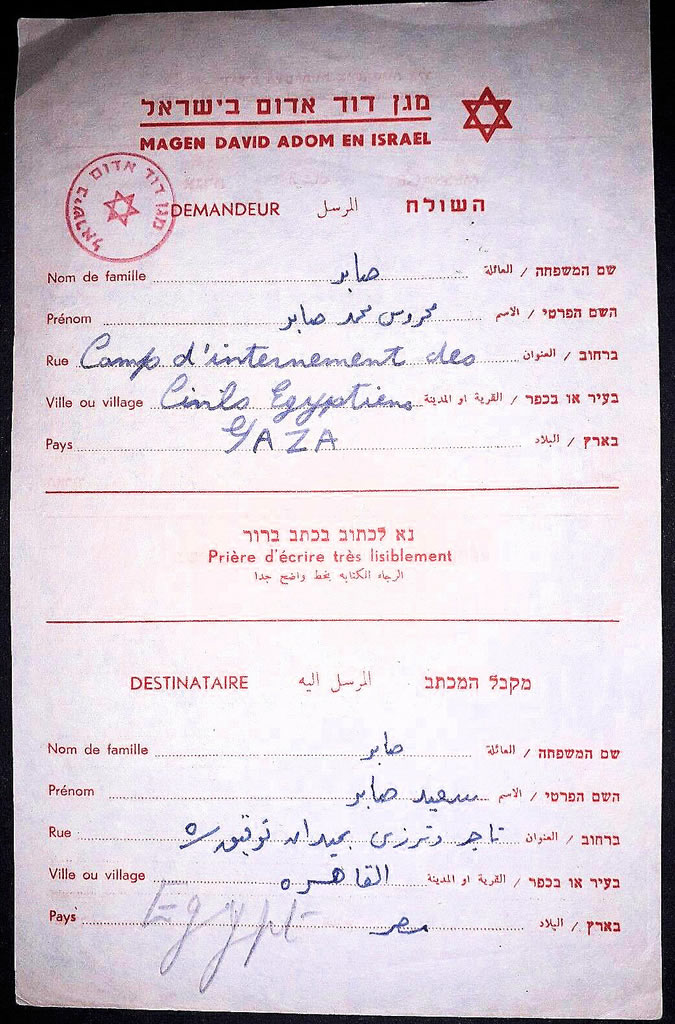 מגן דוד אדום בישראל
MAGEN DAVID ADOM EN ISRAEL
מגן דוד אדום בישראל
DEMANDEUR المرسل השולח
Nom de famille صابر שם המשפחה / العائلة
Prénom محروس محمد صابر השם הפרטי / الاسم
Rue Camp d'internement des ברחוב / العنوان
Ville ou village Civils Egyptiens בעיר או בכפר / القرية او المدينة
Pays GAZA בארץ / البلاد
נא לכתוב בכתב ברור
Prière d'écrire très lisiblement
الرجاء الكتابه بخط واضح جدا
DESTINATAIRE المرسل اليه מקבל המכתב
Nom de famille صابر שם המשפחה / العائلة
Prénom سعيد صابر השם הפרטי / الاسم
Rue تاجر وترزى بميدان توفيق ברחוב / العنوان
Ville ou village القاهره בעיר או בכפר / القرية او المدينة
Pays Egypt مصر בארץ / البلاد